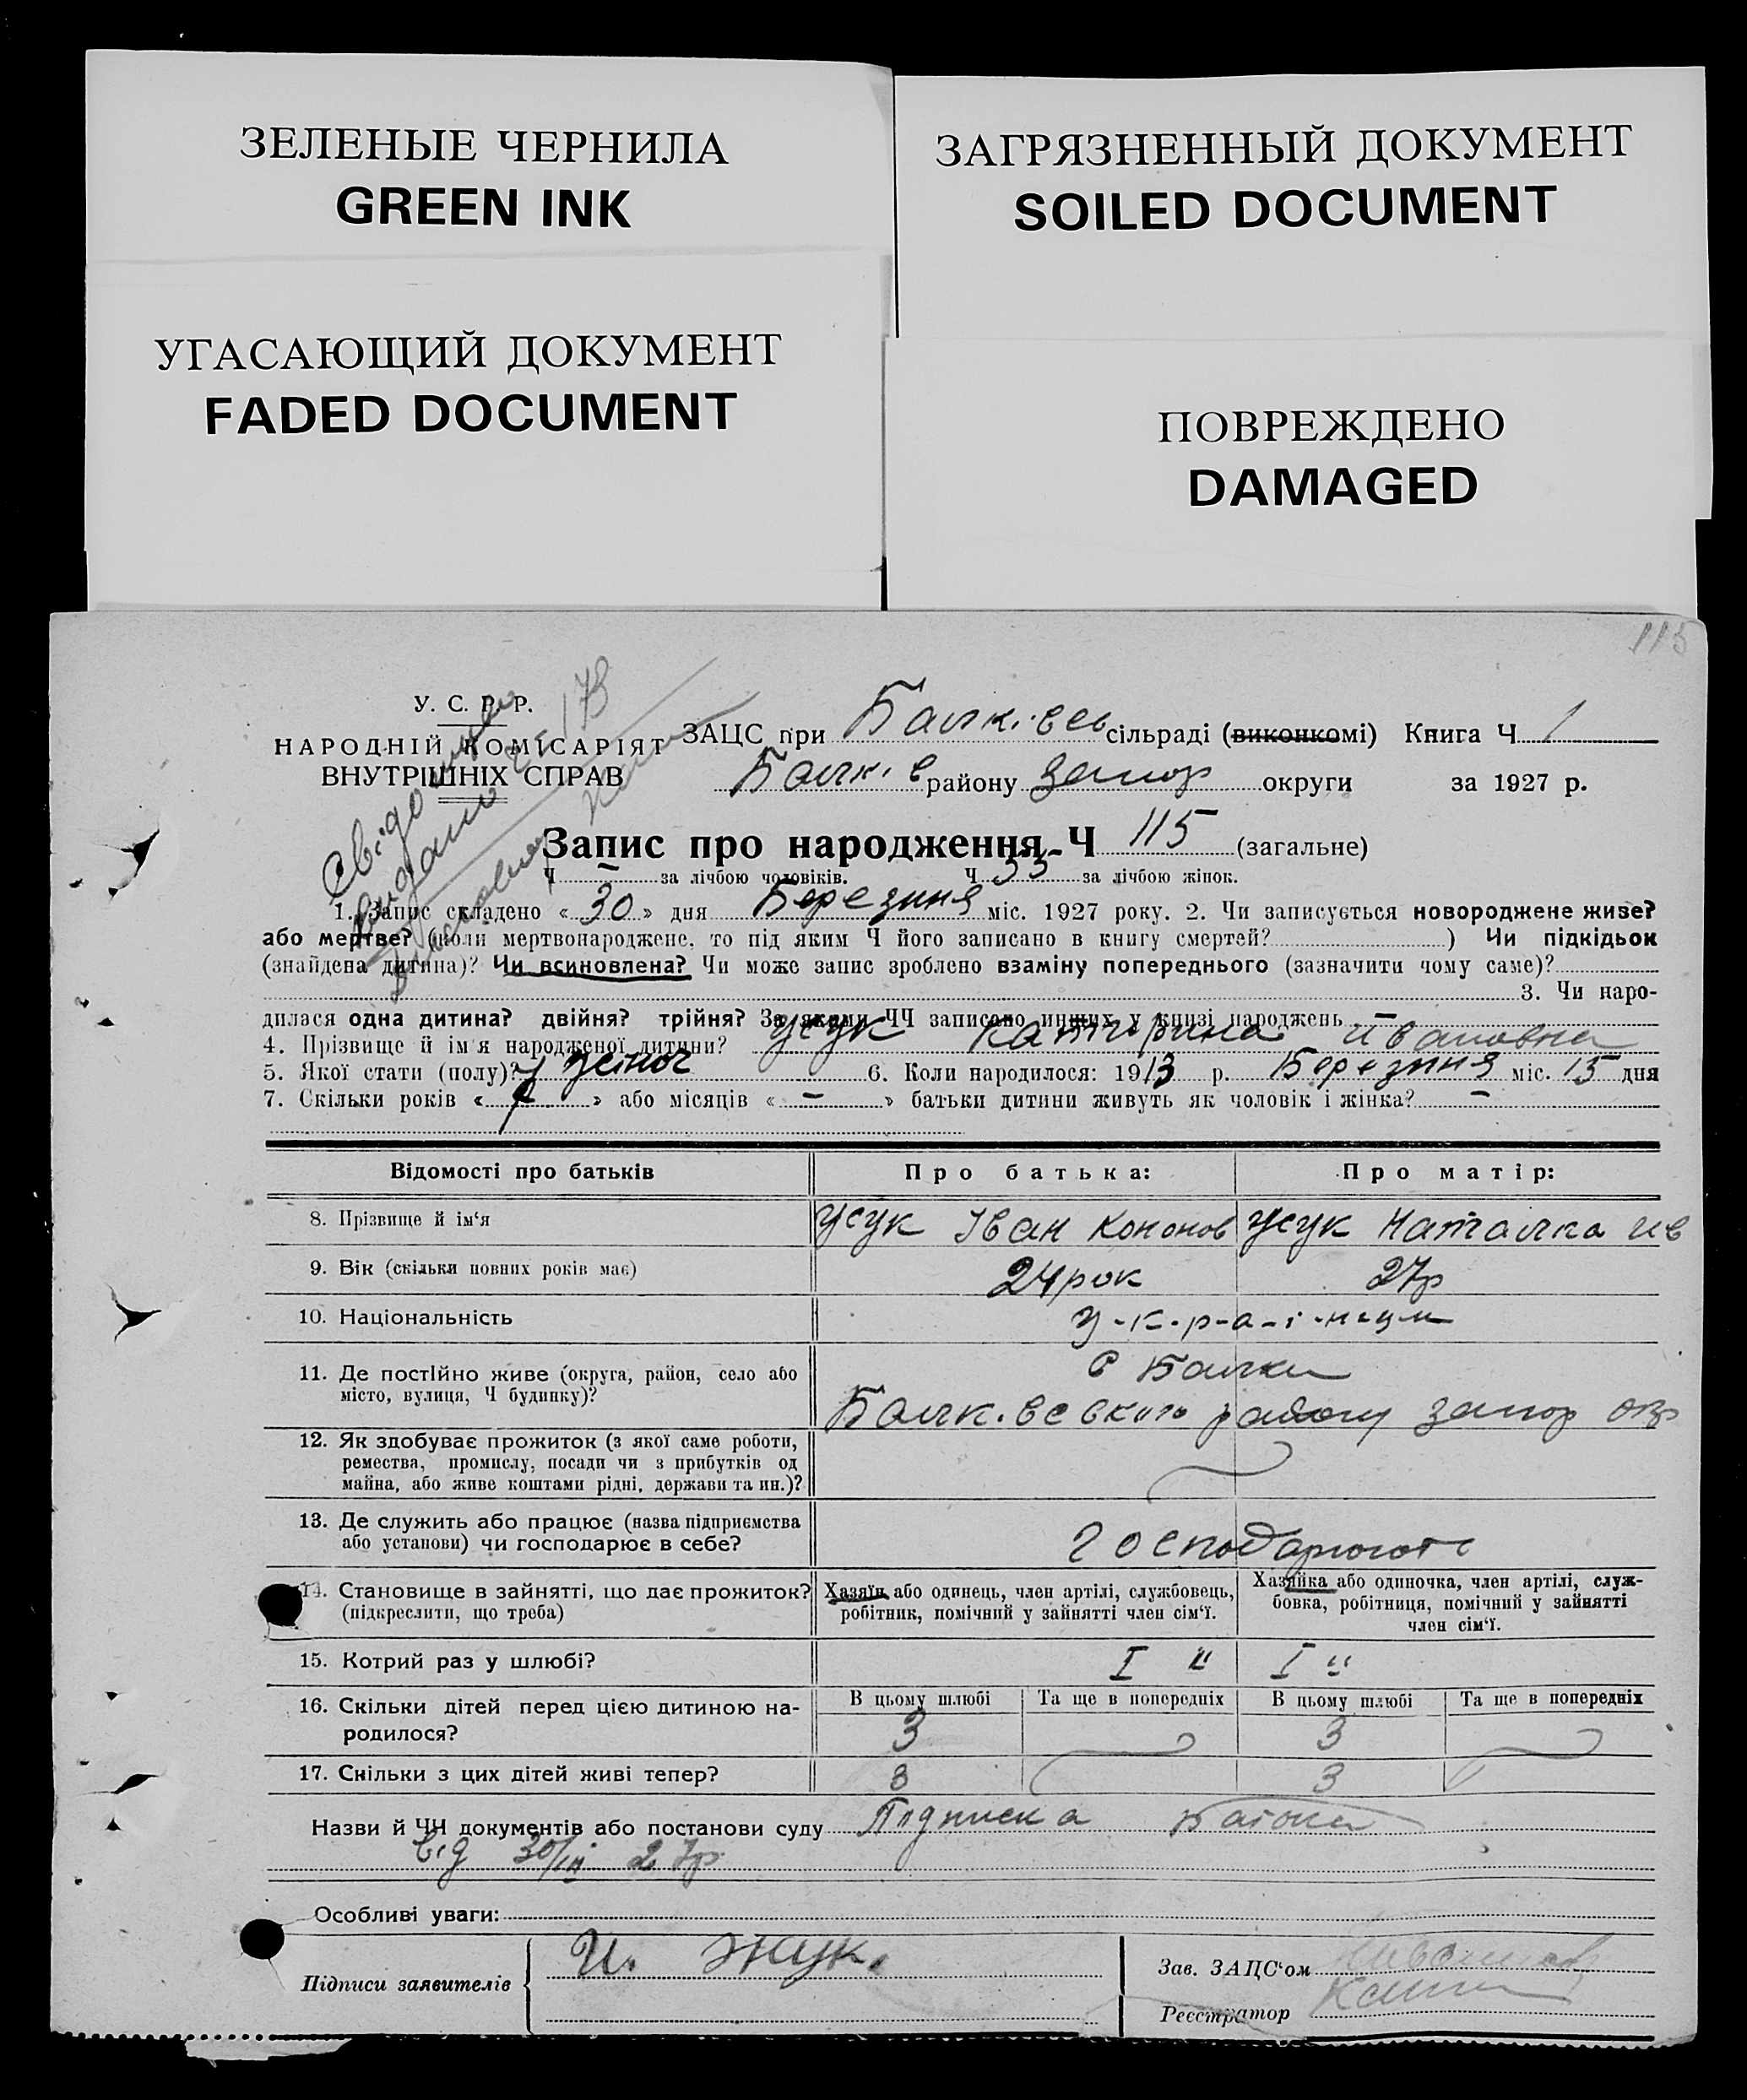 ЗЕЛЕНЫЕ ЧЕРНИЛА
GREEN INK
ЗАГРЯЗНЕННЫЙ ДОКУМЕНТ
SOILED DOCUMENT
УГАСАЮЩИЙ ДОКУМЕНТ
FADED DOCUMENT
ПОВРЕЖДЕНО
DAMAGED
115
У. С. Р. Р.
НАРОДНІЙ КОМІСАРІЯТ
ВНУТРІШНІХ СПРАВ
видано
ЗАЦС при Балківсь сільраді (виконкомі) Книга Ч 1
Балків району Запор округи за 1927 р.
Запис про народження Ч 115 (загальне)
Ч — за лічбою чоловіків. Ч 55 за лічбою жінок.
1. Запис складено « 30 » дня Березиня міс. 1927 року. 2. Чи записується новороджене живе?
або мертве? (коли мертвонароджене, то під яким Ч його записано в книгу смертей? ) Чи підкідьок
(знайдена дитина)? Чи всиновлена? Чи може запис зроблено взаміну попереднього (зазначити чому саме)?
3. Чи наро-
дилася одна дитина? двійня? трійня? За якими ЧЧ записано инших у книзі народжень —
4. Прізвище й ім'я народженої дитини? Усук Катирина Ивановна
5. Якої стати (полу)? жіноч 6. Коли народилося: 1913 р. Березиня міс. 15 дня
7. Скільки років « » або місяців « — » батьки дитини живуть як чоловік і жінка? —
Відомості про батьків Про батька: Про матір:
8. Прізвище й ім'я Усук Іван Кононов Усук Наталка ив
9. Вік (скільки повних років має) 24 рок 27р
10. Національність У-к-р-а-ї-нци
11. Де постійно живе (округа, район, село або
місто, вулиця, Ч будинку)?
с Балки
Балківського району Запор окр
12. Як здобуває прожиток (з якої саме роботи,
ремества, промислу, посади чи з прибутків од
майна, або живе коштами рідні, держави та ин.)?
13. Де служить або працює (назва підприємства
або установи) чи господарює в себе?
господарюють
14. Становище в зайнятті, що дає прожиток?
(підкреслити, що треба)
Хазяїн або одинець, член артілі, службовець,
робітник, помічний у зайнятті член сім'ї.
Хазяйка або одиночка, член артілі, служ-
бовка, робітниця, помічний у зайнятті
член сім'ї.
15. Котрий раз у шлюбі? I " I "
16. Скільки дітей перед цією дитиною на-
родилося?
В цьому шлюбі Та ще в попередніх В цьому шлюбі Та ще в попередніх
3 3
17. Скільки з цих дітей живі тепер? 3 3
Назви й ЧЧ документів або постанови суду Підписка батька
від 30/III 27р
Особливі уваги:
Підписи заявителів И. Жук.
Зав. ЗАЦС'ом
Реєстратор